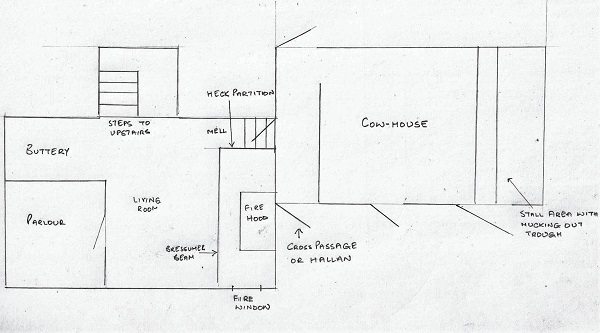 HECK PARTITION
STEPS TO
UPSTAIRS
MELL
COW-HOUSE
BUTTERY
LIVING
ROOM
FIRE
HOOD
PARLOUR
STALL AREA WITH
MUCKING OUT
TROUGH
BRESSUMER
BEAM
CROSS PASSAGE
OR HALLAN
FIRE
WINDOW